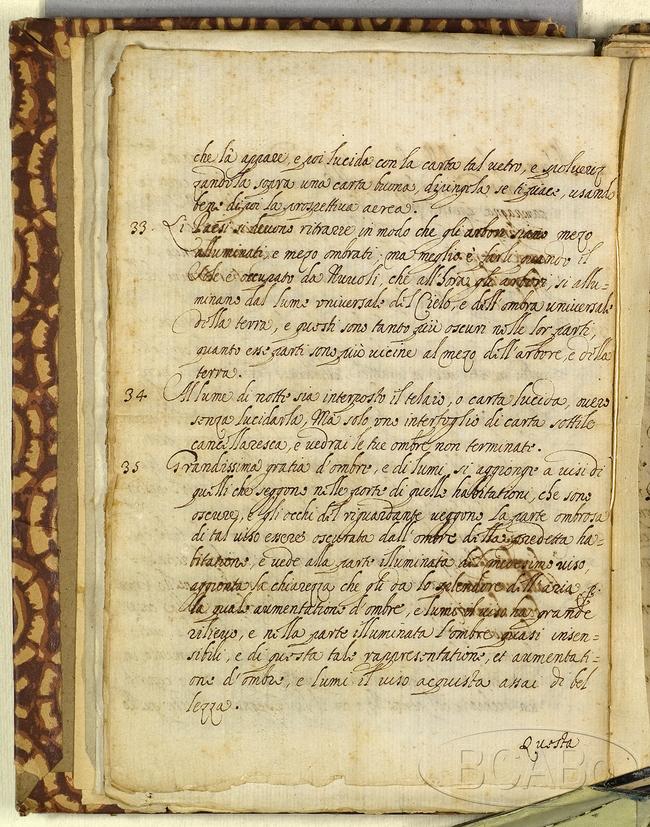 che là appare, e poi lucida con la carta tal vetro, e spolveriz
zandola sopra una carta buona, dipingola se ti piace, usando
bene di poi la prospettiva aerea.
33. Li Paesi si devono ritrarre in modo che gli arbori siano mezo
alluminati, e mezo ombrati; ma meglio è farli quando il
Sole è occupato da Nuvoli, che all'hora gli arbori, si allu-
minano dal lume universale del Cielo, e dell'ombra universale
della terra, e questi sono tanto più oscuri nelle lor parti,
quanto esse parti sono più vicine al mezo dell'arbore, e della
terra.
34. Al lume di notte sia interposto il telaio, o carta lucida, overo
senza lucidarla, Ma solo uno interfoglio di carta sottile
cancellaresca, e vedrai le tue ombre non terminate.
35. Grandissima gratia d'ombre, e di lumi, si aggionge a visi di
quelli che seggono nelle porte di quelle habitationi, che sono
oscure, e gli occhi del riguardante veggono la parte ombrosa
di tal viso essere oscurata dall'ombre della predetta ha-
bitatione, e vede alla parte illuminata del medesimo viso,
aggionta la chiarezza che gli da lo splendore dell'aria p:
la quale aumentatione d'ombre, e lumi il viso ha grande
rilievo, e nella parte illuminata l'ombre quasi insen-
sibili, e di questa tale rappresentatione, et aumentati-
one d'ombre, e lumi il viso acquista assai di bel
lezza.
Questa
BCABo